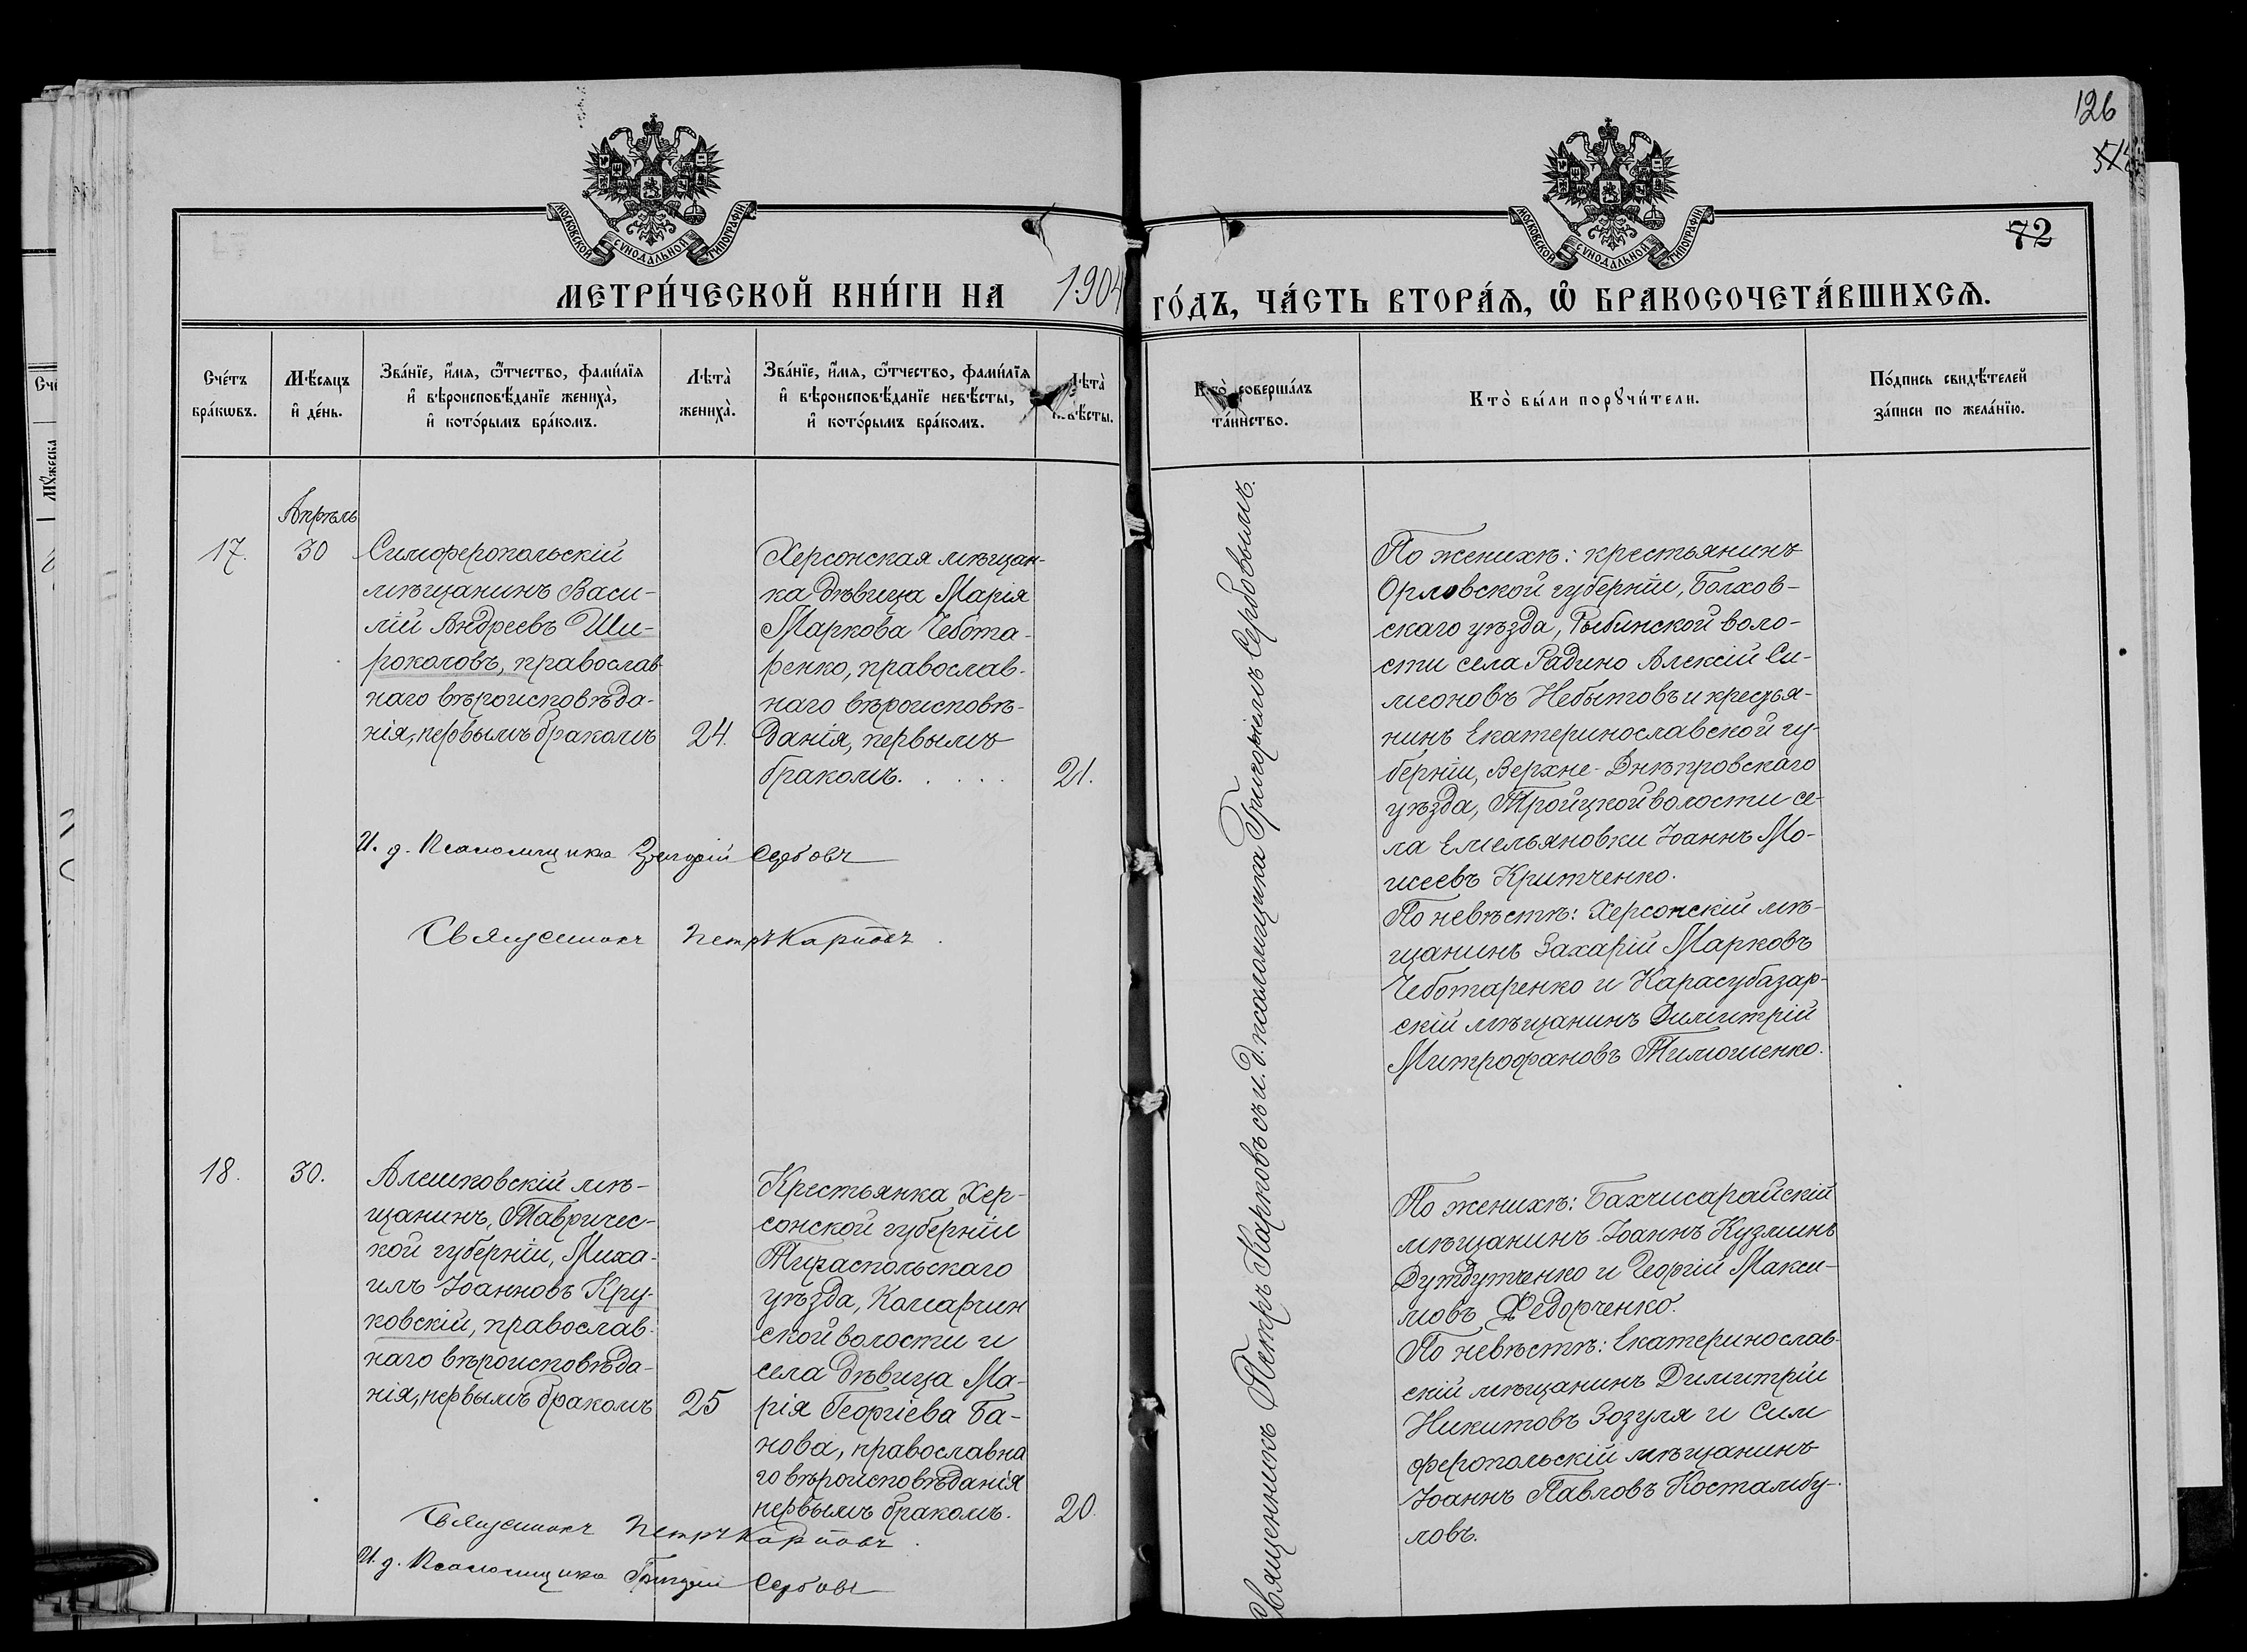 126
72
МОСКОВСКОЙ СѴНОДАЛЬНОЙ ТИПОГРАФІИ
МОСКОВСКОЙ СѴНОДАЛЬНОЙ ТИПОГРАФІИ
МЕТРИ́ЧЕСКОЙ КНИ́ГИ НА 1904 ГО́ДЪ, ЧА́СТЬ ВТОРА́Ѧ, Ѡ҆ БРАКОСОЧЕТА́ВШИХСѦ.
Сче́тъ
бра́кѡвъ.
Мѣ́сяцъ
и҆ де́нь.
Зва́нїе, и҆́мя, ѻ҆́тчество, фами́лїя
и҆ вѣроисповѣ́данїе жениха̀,
и҆ кото́рымъ бра́комъ.
Лѣта̀
жениха̀.
Зва́нїе, и҆́мя, ѻ҆́тчество, фами́лїя
и҆ вѣроисповѣ́данїе невѣ́сты,
и҆ кото́рымъ бра́комъ.
Лѣта̀
невѣ́сты.
Кто̀ соверша́лъ
та́инство.
Кто̀ бы́ли порꙋчи́тели.
По́дпись свидѣ́телей
за́писи по жела́нїю.
Апрѣль
17.
30
Симферопольскій
мѣщанинъ Васи-
лій Андреевъ Ши-
роколовъ, православ
наго вѣроисповѣда-
нія, первымъ бракомъ
24.
Херсонская мѣщан-
ка дѣвица Марія
Маркова Чебота-
ренко, православ-
наго вѣроисповѣ-
данія, первымъ
бракомъ. . . . .
21.
И. д. Псаломщика Григорій Сербовъ
Священникъ Петръ Карповъ.
Священникъ Петръ Карповъ съ и. д. псаломщика Григоріемъ Сербовымъ.
По женихѣ: крестьянинъ
Орловской губерніи, Болхов-
скаго уѣзда, Рыбинской воло-
сти села Радино Алексій Си-
меоновъ Небытовъ и крестья-
нинъ Екатеринославской гу-
берніи, Верхне-Днѣпровскаго
уѣзда, Тройцкой волости се-
ла Емельяновки Іоаннъ Мо-
исеевъ Критченко.
По невѣстѣ: Херсонскій мѣ-
щанинъ Захарій Марковъ
Чеботаренко и Карасубазар-
скій мѣщанинъ Димитрій
Митрофановъ Тимошенко.
18.
30.
Алешковскій мѣ-
щанинъ, Тавричес-
кой губерніи, Миха-
илъ Іоанновъ Кру-
ковскій, православ-
наго вѣроисповѣда-
нія, первымъ бракомъ
25
Крестьянка Хер-
сонской губерніи
Тираспольскаго
уѣзда, Комарчин
ской волости и
села дѣвица Ма-
рія Георгіева Ба-
нова, православна
го вѣроисповѣданія
первымъ бракомъ.
20.
Священникъ Петръ Карповъ.
И. д. Псаломщика Григорій Сербовъ
По женихѣ: Бахчисарайскій
мѣщанинъ Іоаннъ Кузминъ
Дутдутченко и Георгій Макси-
мовъ Федорченко.
По невѣстѣ: Екатеринослав-
скій мѣщанинъ Димитрій
Никитовъ Зозуля и Сим
феропольскій мѣщанинъ
Іоаннъ Павловъ Костамбу-
ловъ.